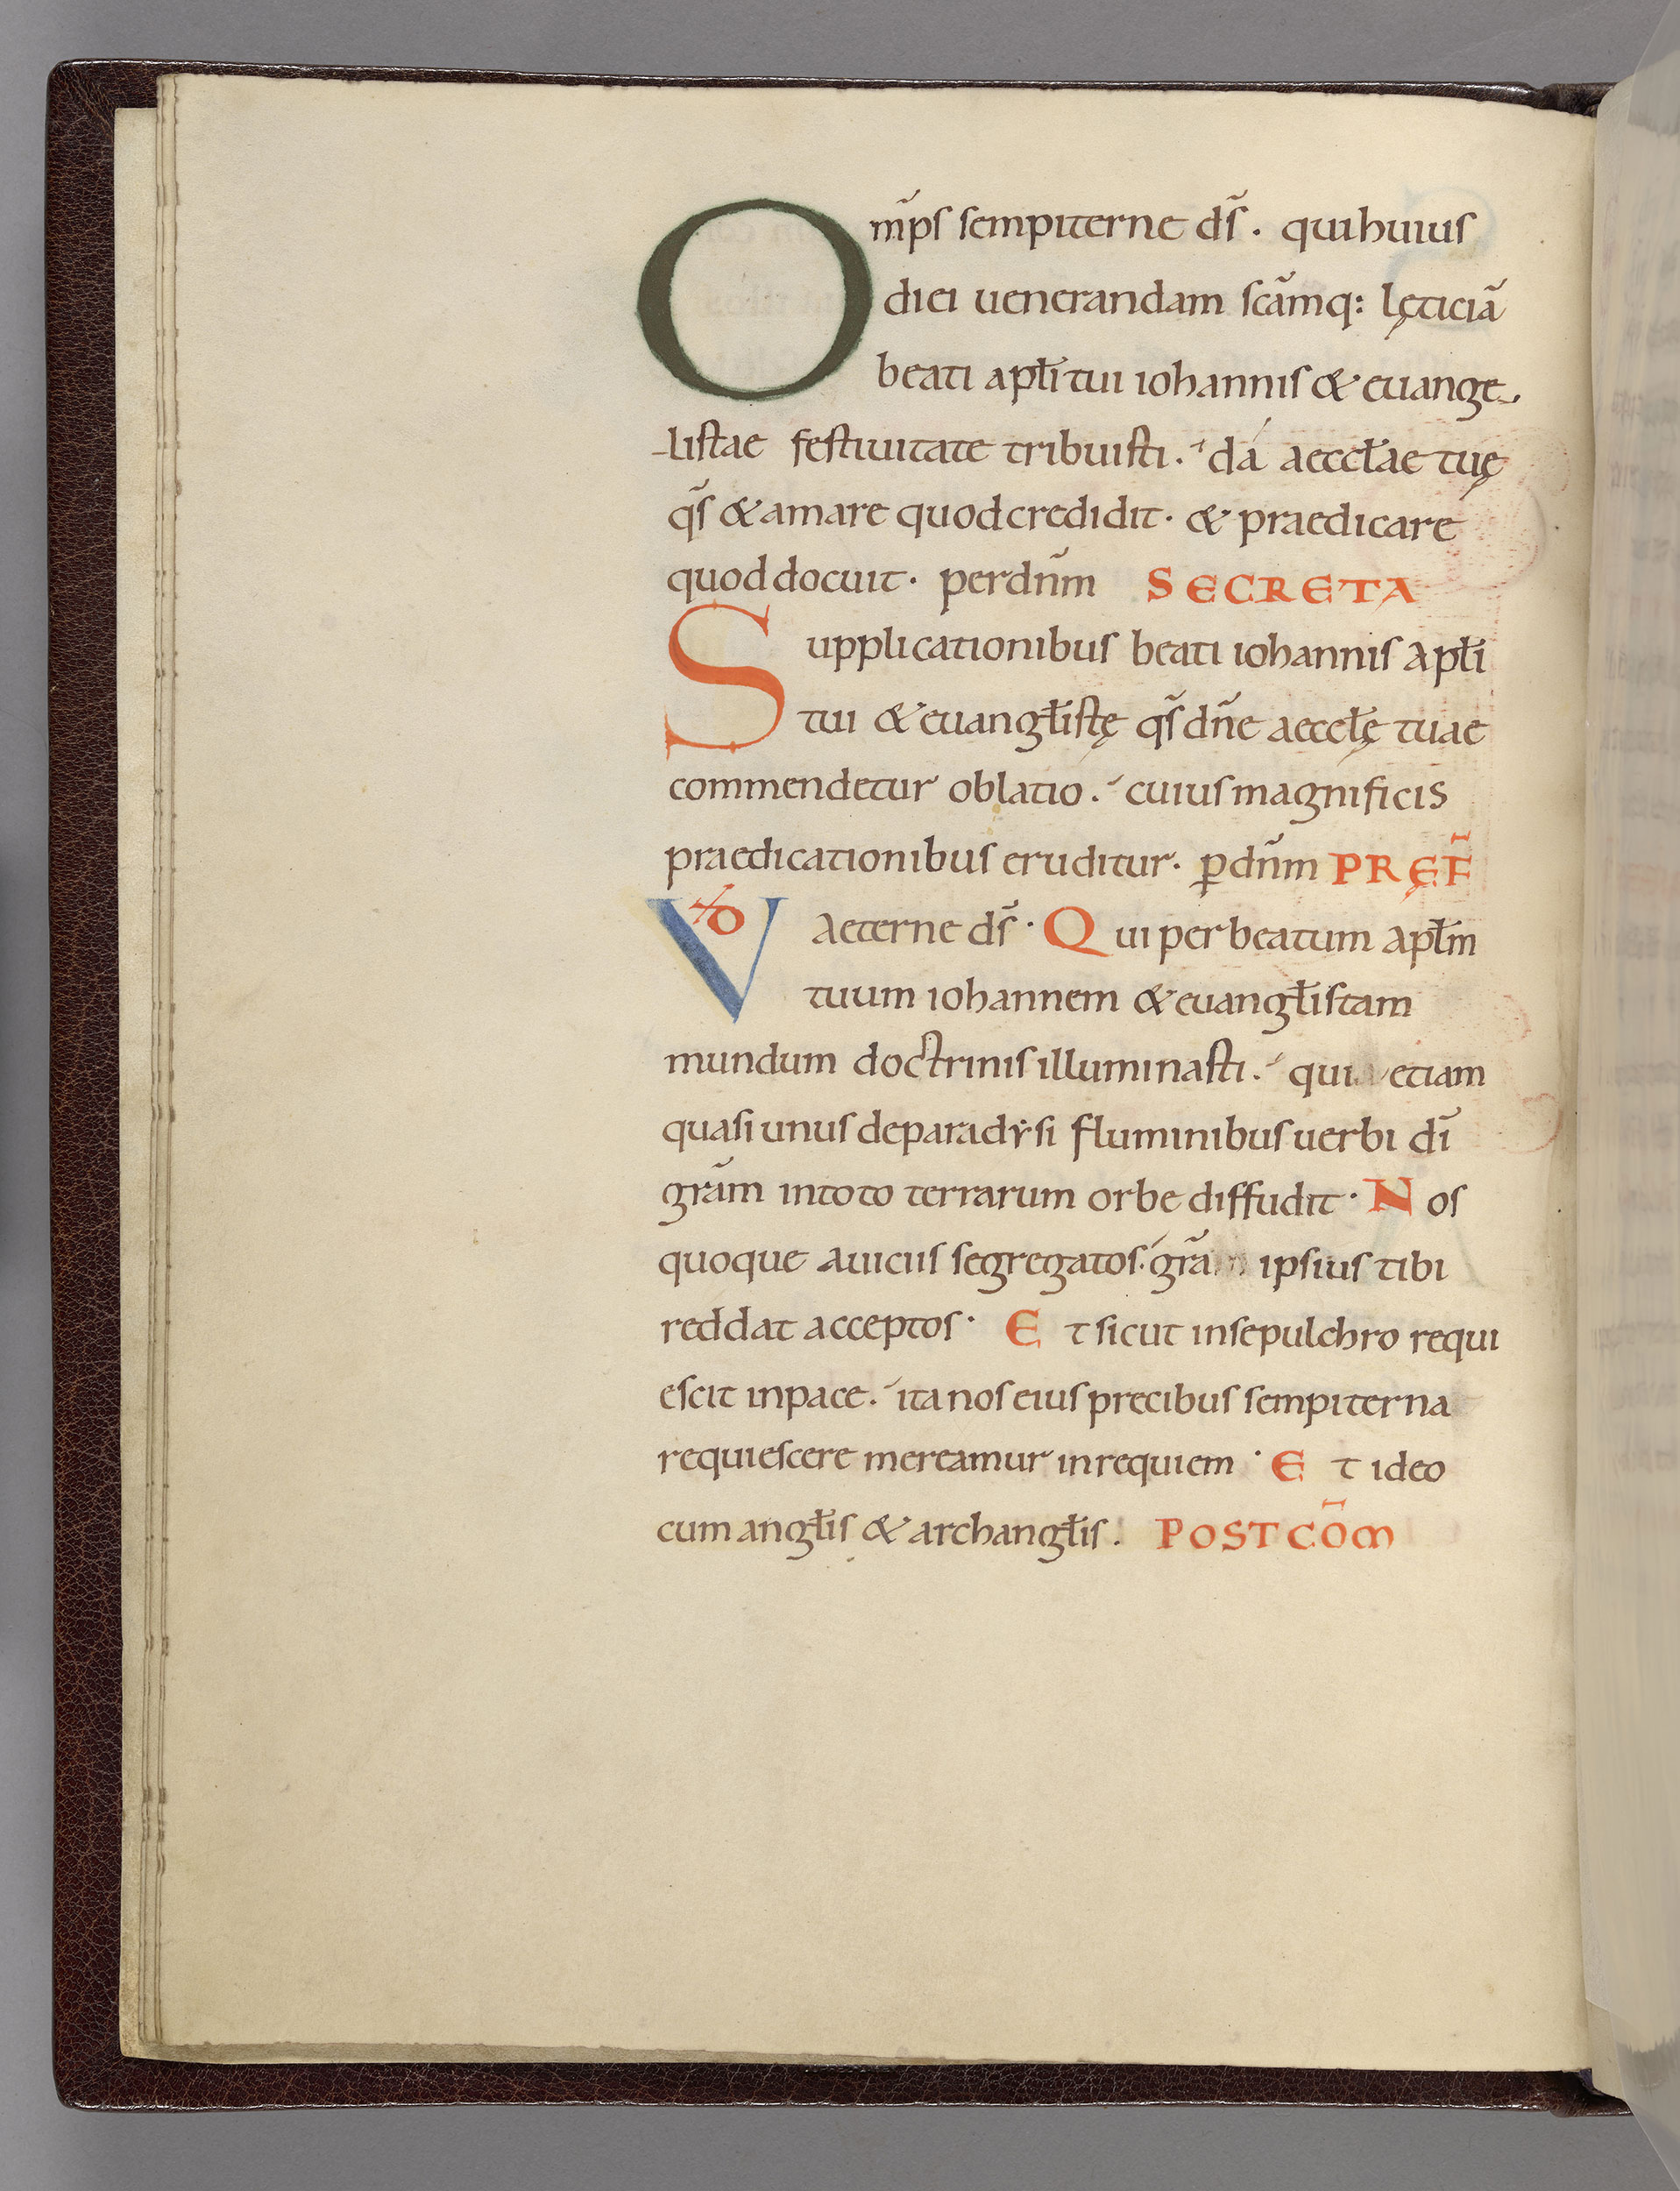 Om̃ps sempiterne ds̃. qui huius
diei uenerandam scãmq: lęticiã
beati apłi tui iohannis & euange-
-listae festiuitate tribuisti. dá aecclae tuę
qs̃ & amare quod credidit. & praedicare
quod docuit. per dnm̃ SECRETA
Supplicationibus beati iohannis apłi
tui & euangłistę qs̃ dñe aeccłę tuae
commendetur oblatio. cuius magnificis
praedicationibus eruditur. ꝑ dnm̃ PRĘF̃
VD aeterne ds̃. Qui per beatum apłm
tuum iohannem & euangłistam
mundum doctrinis illuminasti. qui etiam
quasi unus de paradẏsi fluminibus uerbi dĩ
grãm in toto terrarum orbe diffudit. Nos
quoque a uiciis segregatos. grã ipsius tibi
reddat acceptos. Et sicut in sepulchro requi
escit in pace. ita nos eius precibus sempiterna
requiescere mereamur in requiem. Et ideo
cum angłis & archangłis. POST COM̃